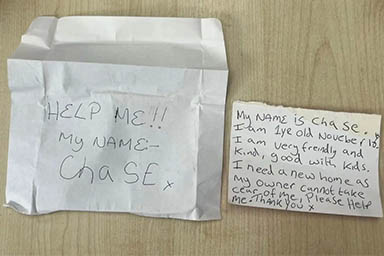 HELP ME!!
My NAME-
ChaSE x
My NAME is chase.
I am 1ye old November 10
I am very friendly and
Kind, good with kids.
I need a new home as
my owner cannot take
cear of me, Please Help
me. Thank you x